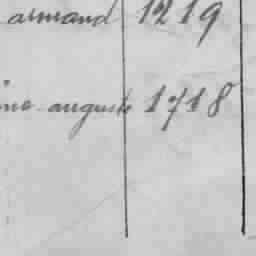 armand 1219
auguste 1718